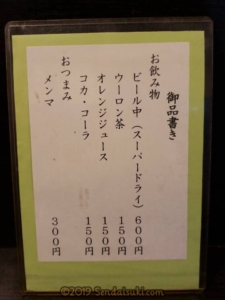 御品書き
お飲み物
ビール中（スーパードライ）６００円
ウーロン茶 １５０円
オレンジジュース １５０円
コカ・コーラ １５０円
おつまみ
メンマ ３００円
©2019 Sendaisuki.com